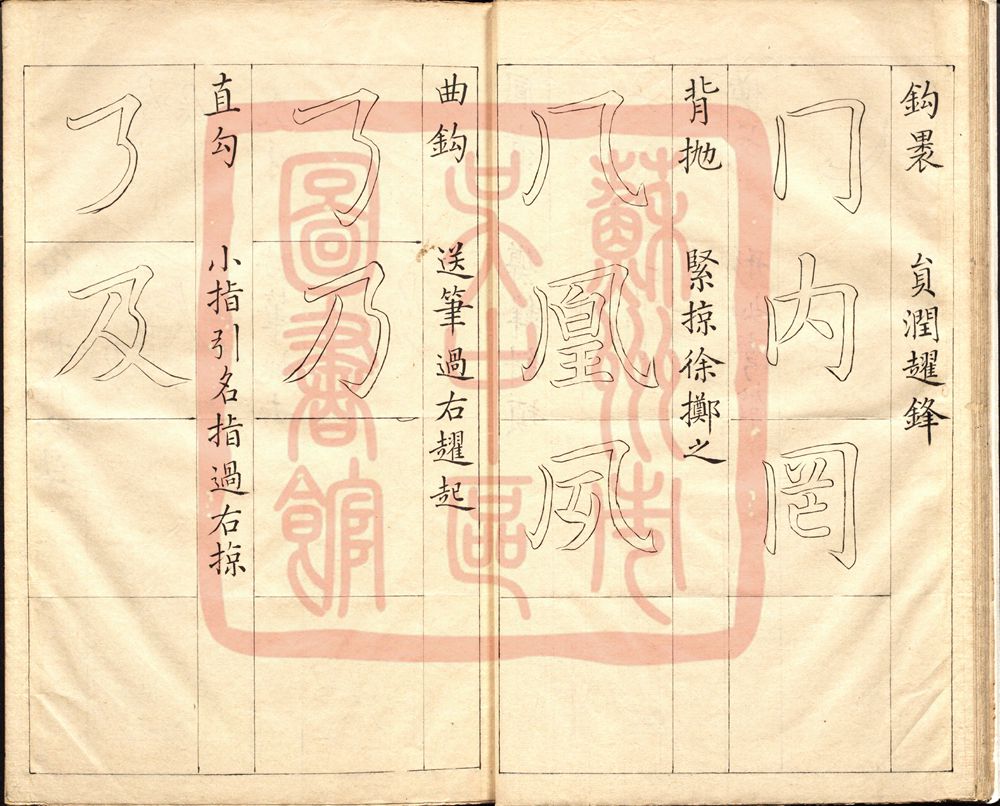 鈎裹　員潤趯鋒
冂内罔
背抛　緊掠徐擲之
⺄凰夙
曲鈎　送筆過右趯起
㇋乃
直勾　小指引名指過右掠
㇇及
蘇州市
吳中區
圖書館